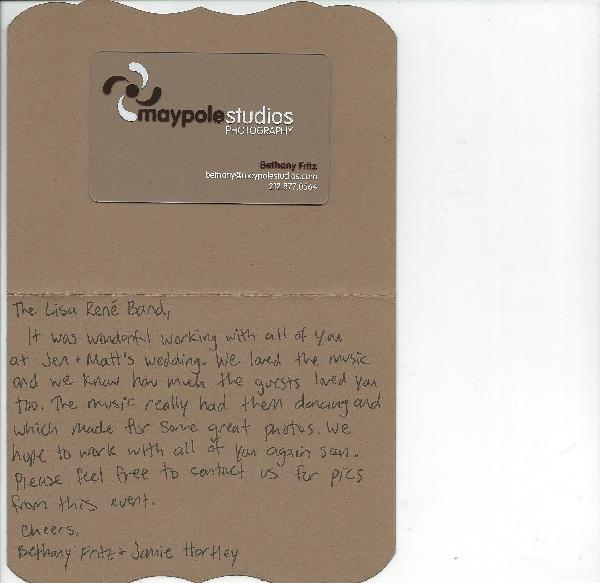 maypolestudios
PHOTOGRAPHY
Bethany Fritz
bethany@maypolestudios.com
212.877.0564
The Lisa René Band,
It was wonderful working with all of you
at Jen + Matt's wedding. We loved the music
and we know how much the guests loved you
too. The music really had them dancing and
which made for some great photos. We
hope to work with all of you again soon.
Please feel free to contact us for pics
from this event.
Cheers,
Bethany Fritz + Jamie Hartley